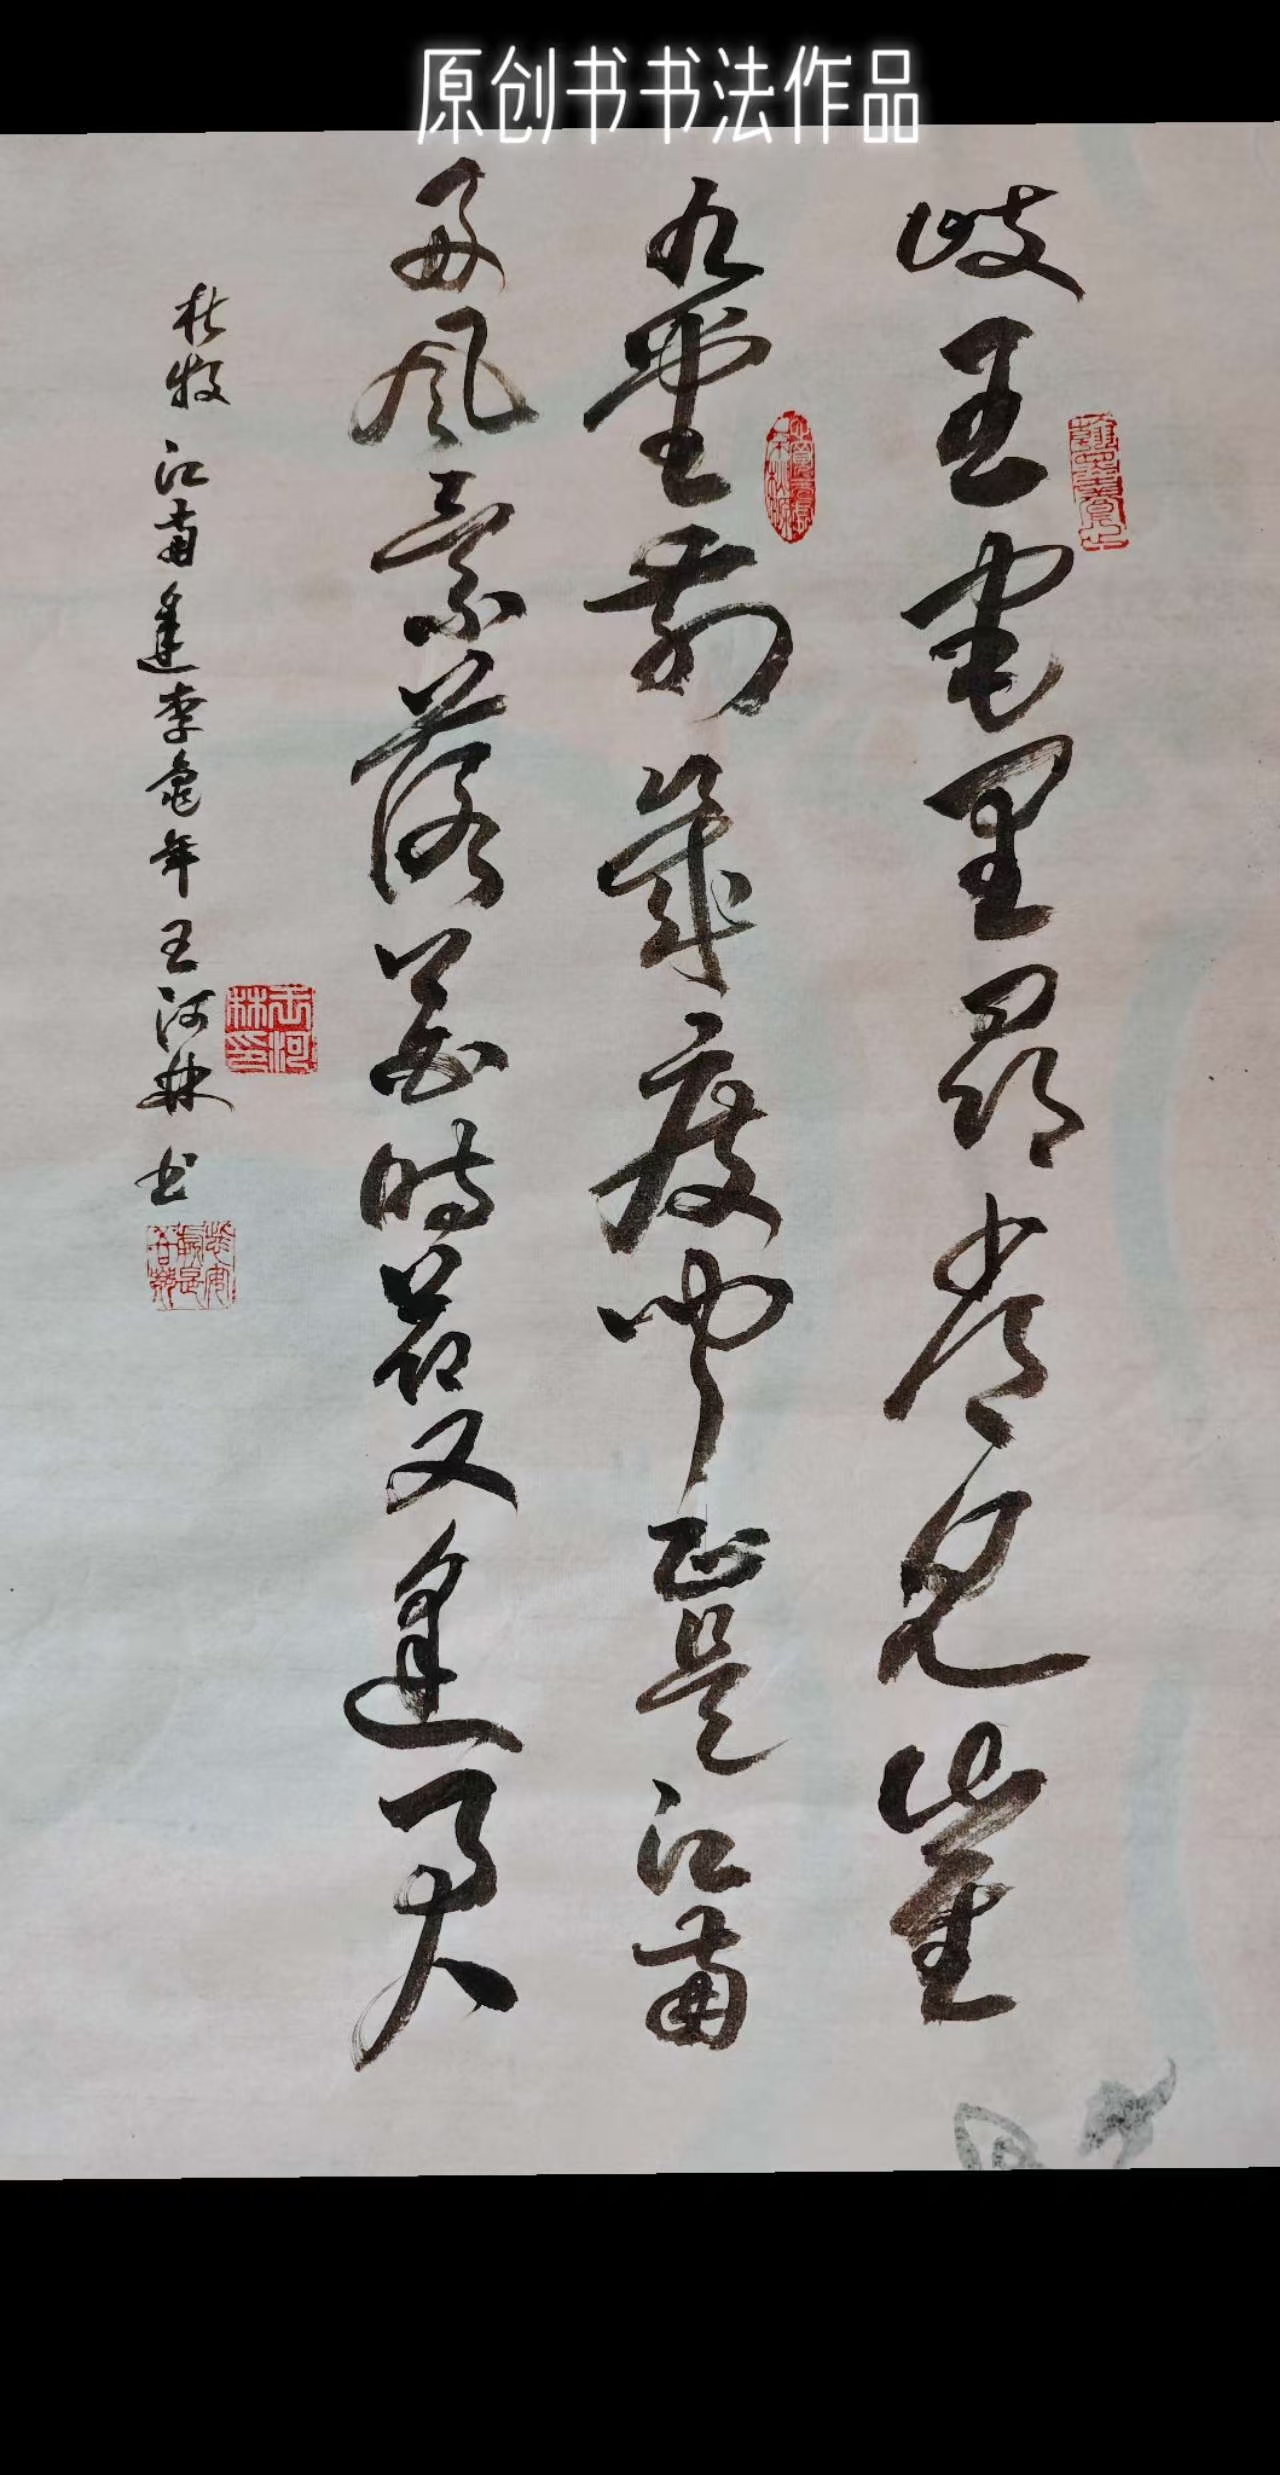 原创书书法作品
岐王宅里寻常见崔
九堂前几度闻正是江南
好风景落花时节又逢君
杜牧江南逢李龟年王河林书
王河林印